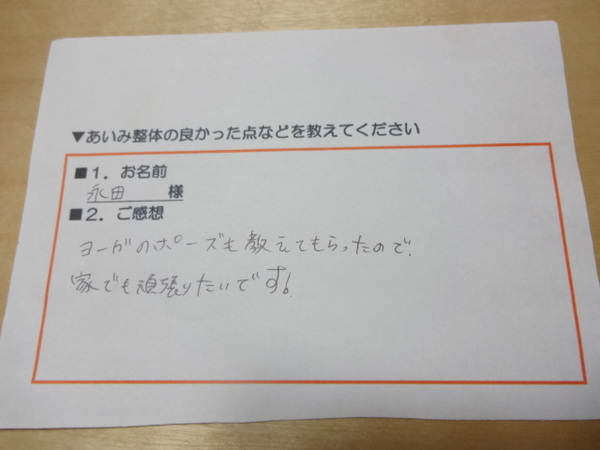 ▼あいみ整体の良かった点などを教えてください
■1．お名前
永田 様
■2．ご感想
ヨーガのポーズも教えてもらったので、
家でも頑張りたいです!